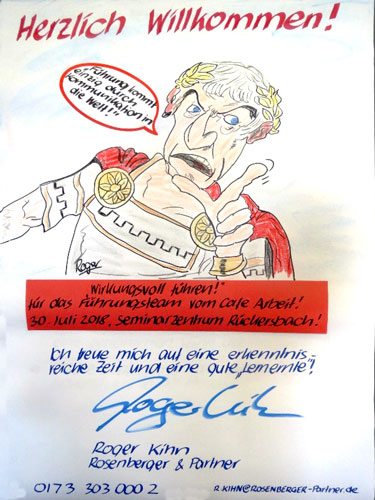 Herzlich Willkommen!
"Führung kommt
einzig durch
Kommunikation in
die Welt!"
Roger
"Wirkungsvoll führen!"
für das Führungsteam vom Cafe Arbeit!
30. Juli 2018, Seminarzentrum Rückersbach!
Ich freue mich auf eine erkenntnis-
reiche Zeit und eine gute "Lernernte"!
Roger Kihn
Roger Kihn
Rosenberger & Partner
0173 303 000 2
R.KIHN@ROSENBERGER-Partner.de